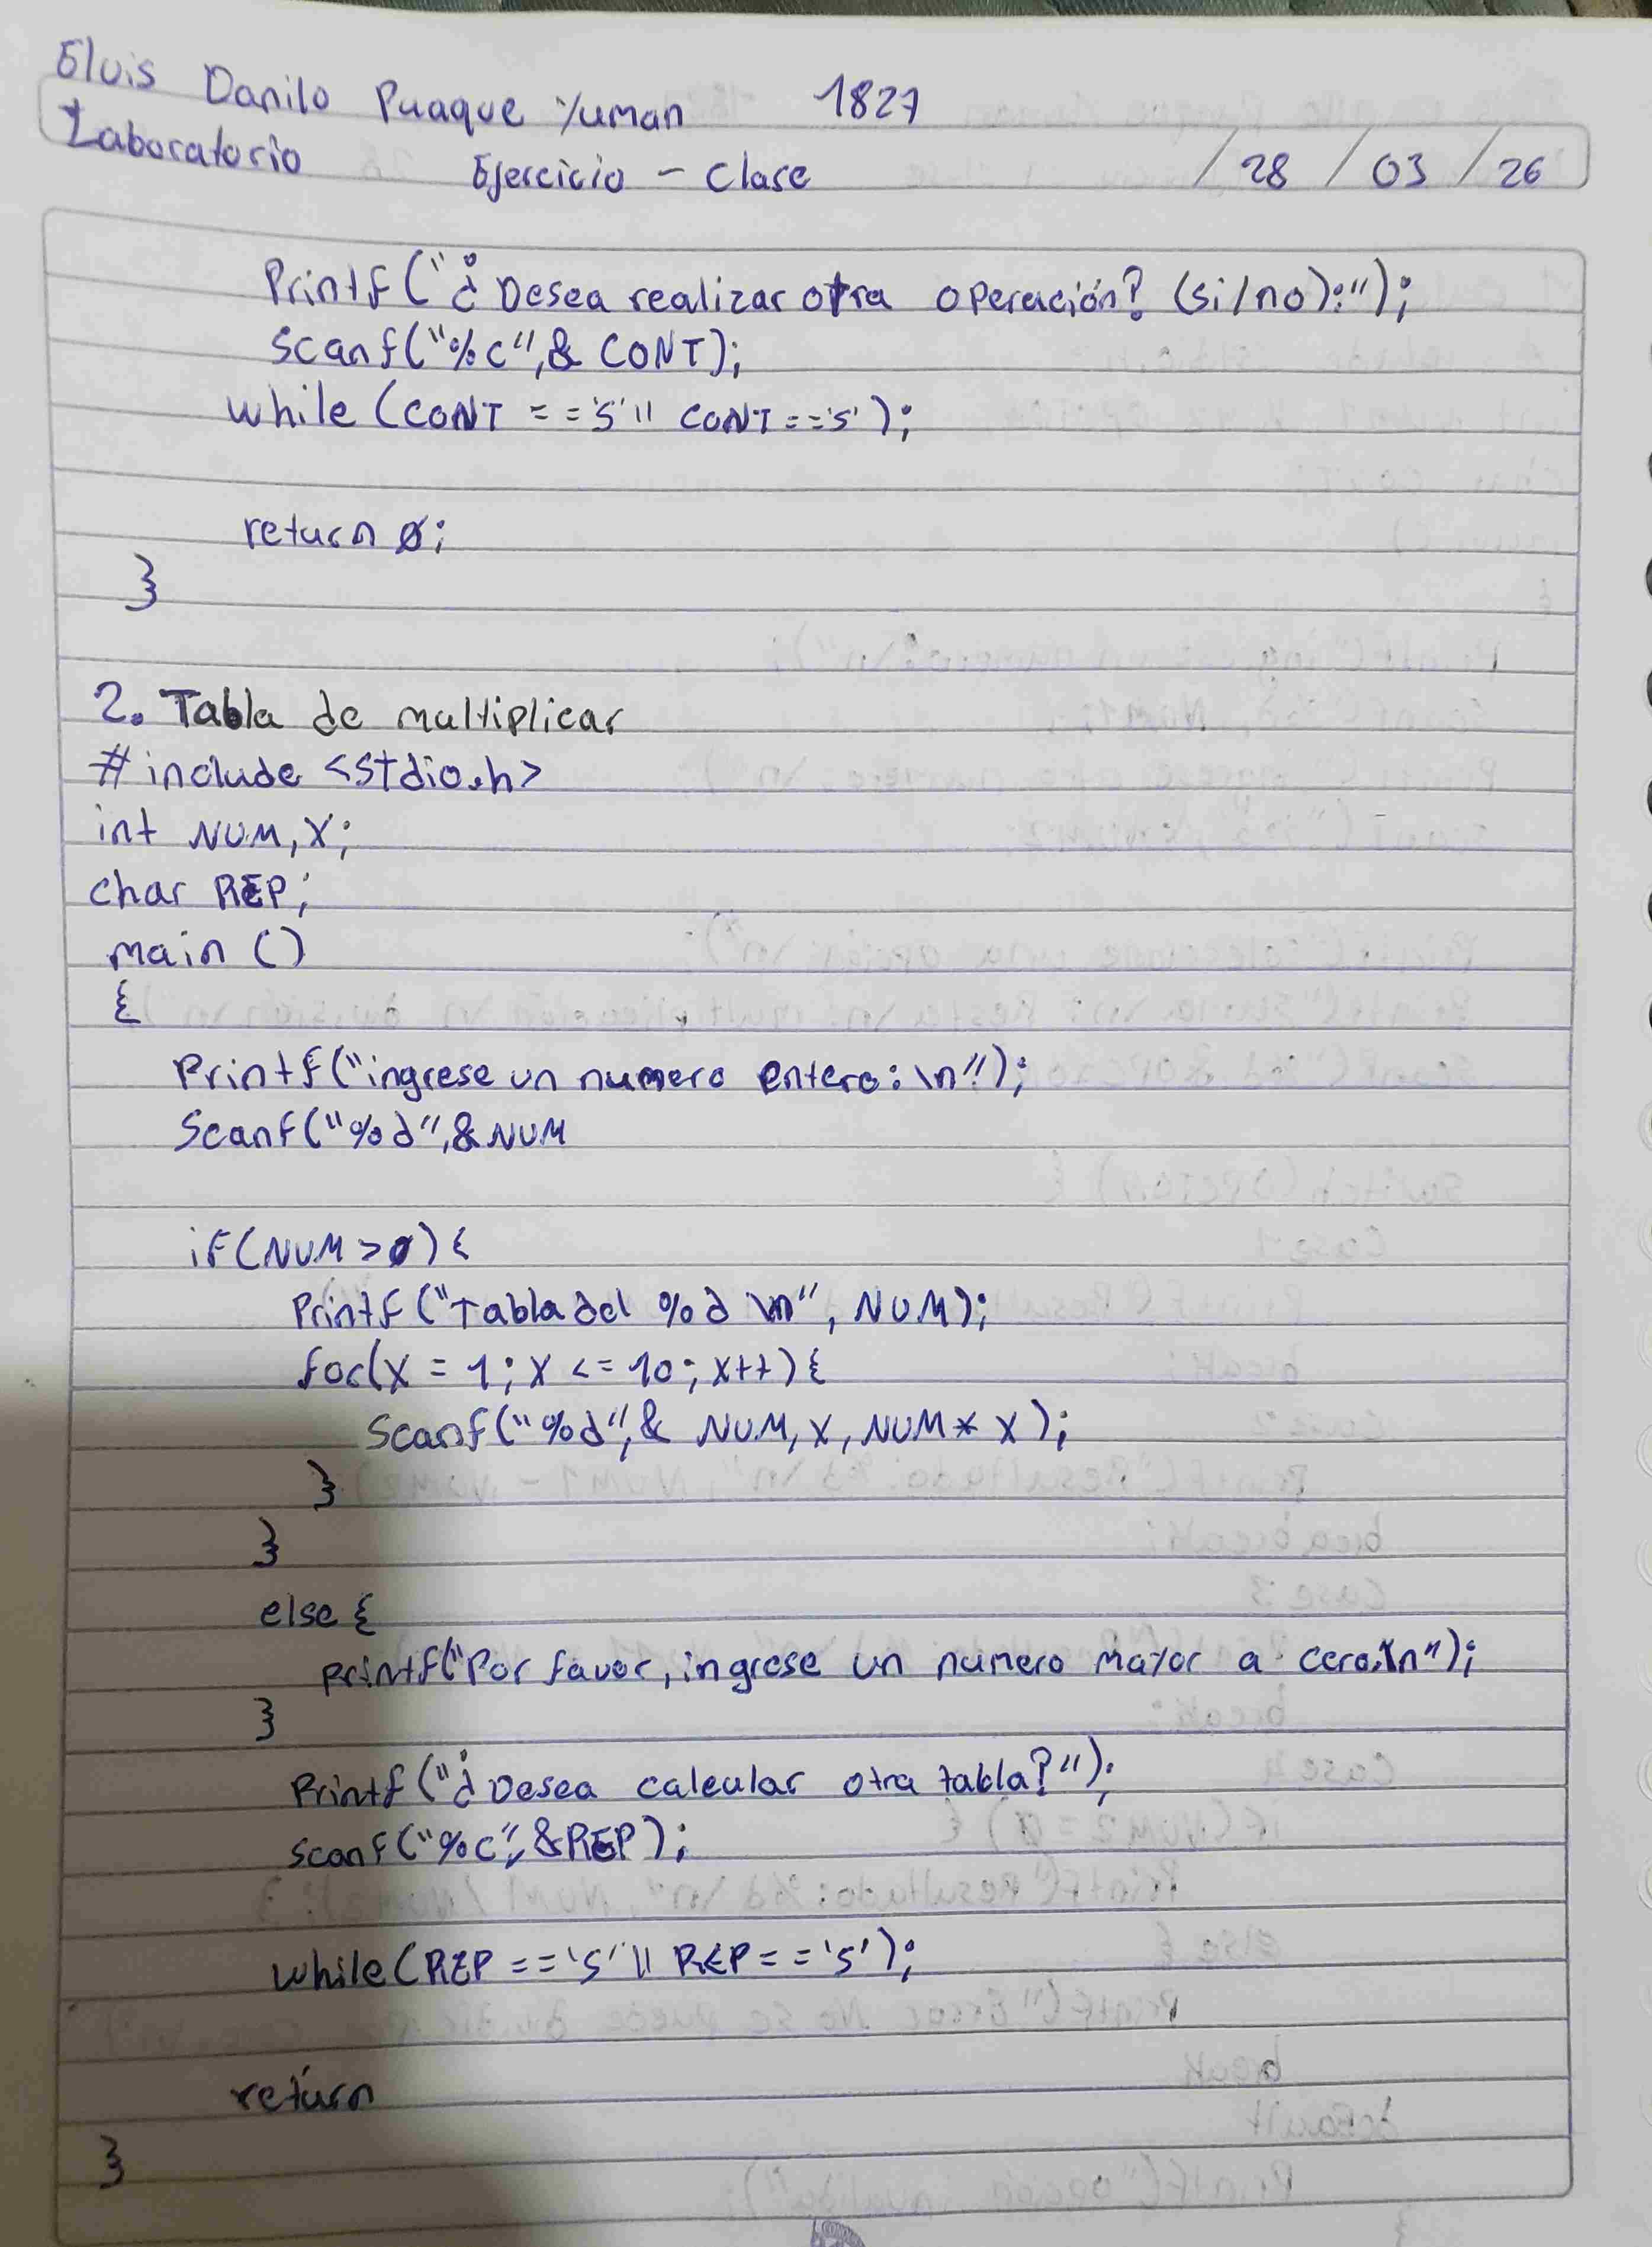 Elvis Danilo Puaque Yuman 1827
Laboratorio Ejercicio - Clase / 28 / 03 / 26
Printf("¿Desea realizar otra operación? (si/no):");
Scanf("%c",& CONT);
while (CONT =='S'|| CONT=='s');
return 0;
}
2. Tabla de multiplicar
#include <stdio.h>
int NUM, X;
char REP;
main ()
{
Printf("ingrese un numero entero: \n");
Scanf("%d",&NUM
if(NUM > 0) {
Printf("Tabla del %d \n", NUM);
for(X = 1; X <= 10; X++) {
Scanf("%d",& NUM, X, NUM * X);
}
}
else {
printf("Por favor, ingrese un numero mayor a cero.\n");
}
Printf("¿Desea calcular otra tabla?");
scanf("%c", &REP);
while(REP =='S'|| REP=='s');
return
}